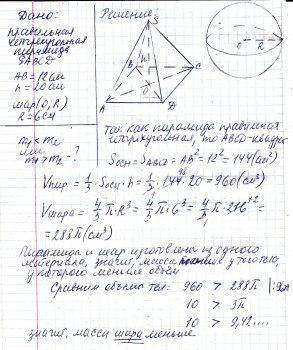 Дано:
правильная
четырехугольная
пирамида
SABCD
AB = 12 см
h = 20 см
шар (O; R)
R = 6 см
m₁ < m₂
или
m₁ > m₂ - ?
Решение:
S
B
C
A
D
O
h
O
R
Так как пирамида правильная
четырехугольная, то ABCD-квадрат
Sосн = SABCD = AB² = 12² = 144 (см²)
Vпир. = 1/3 · Sосн · h = 1/3 · 144 · 20 = 960 (см³)
Vшара = 4/3 π · R³ = 4/3 π · 6³ = 4/3 π · 216 =
= 288π (см³)
Пирамида и шар изготовлены из одного
материала, значит, масса меньше у того тела,
у которого меньше объем
Сравним объемы тел: 960 > 288π | : 96
10 > 3π
10 > 9,42...
значит, масса шара меньше